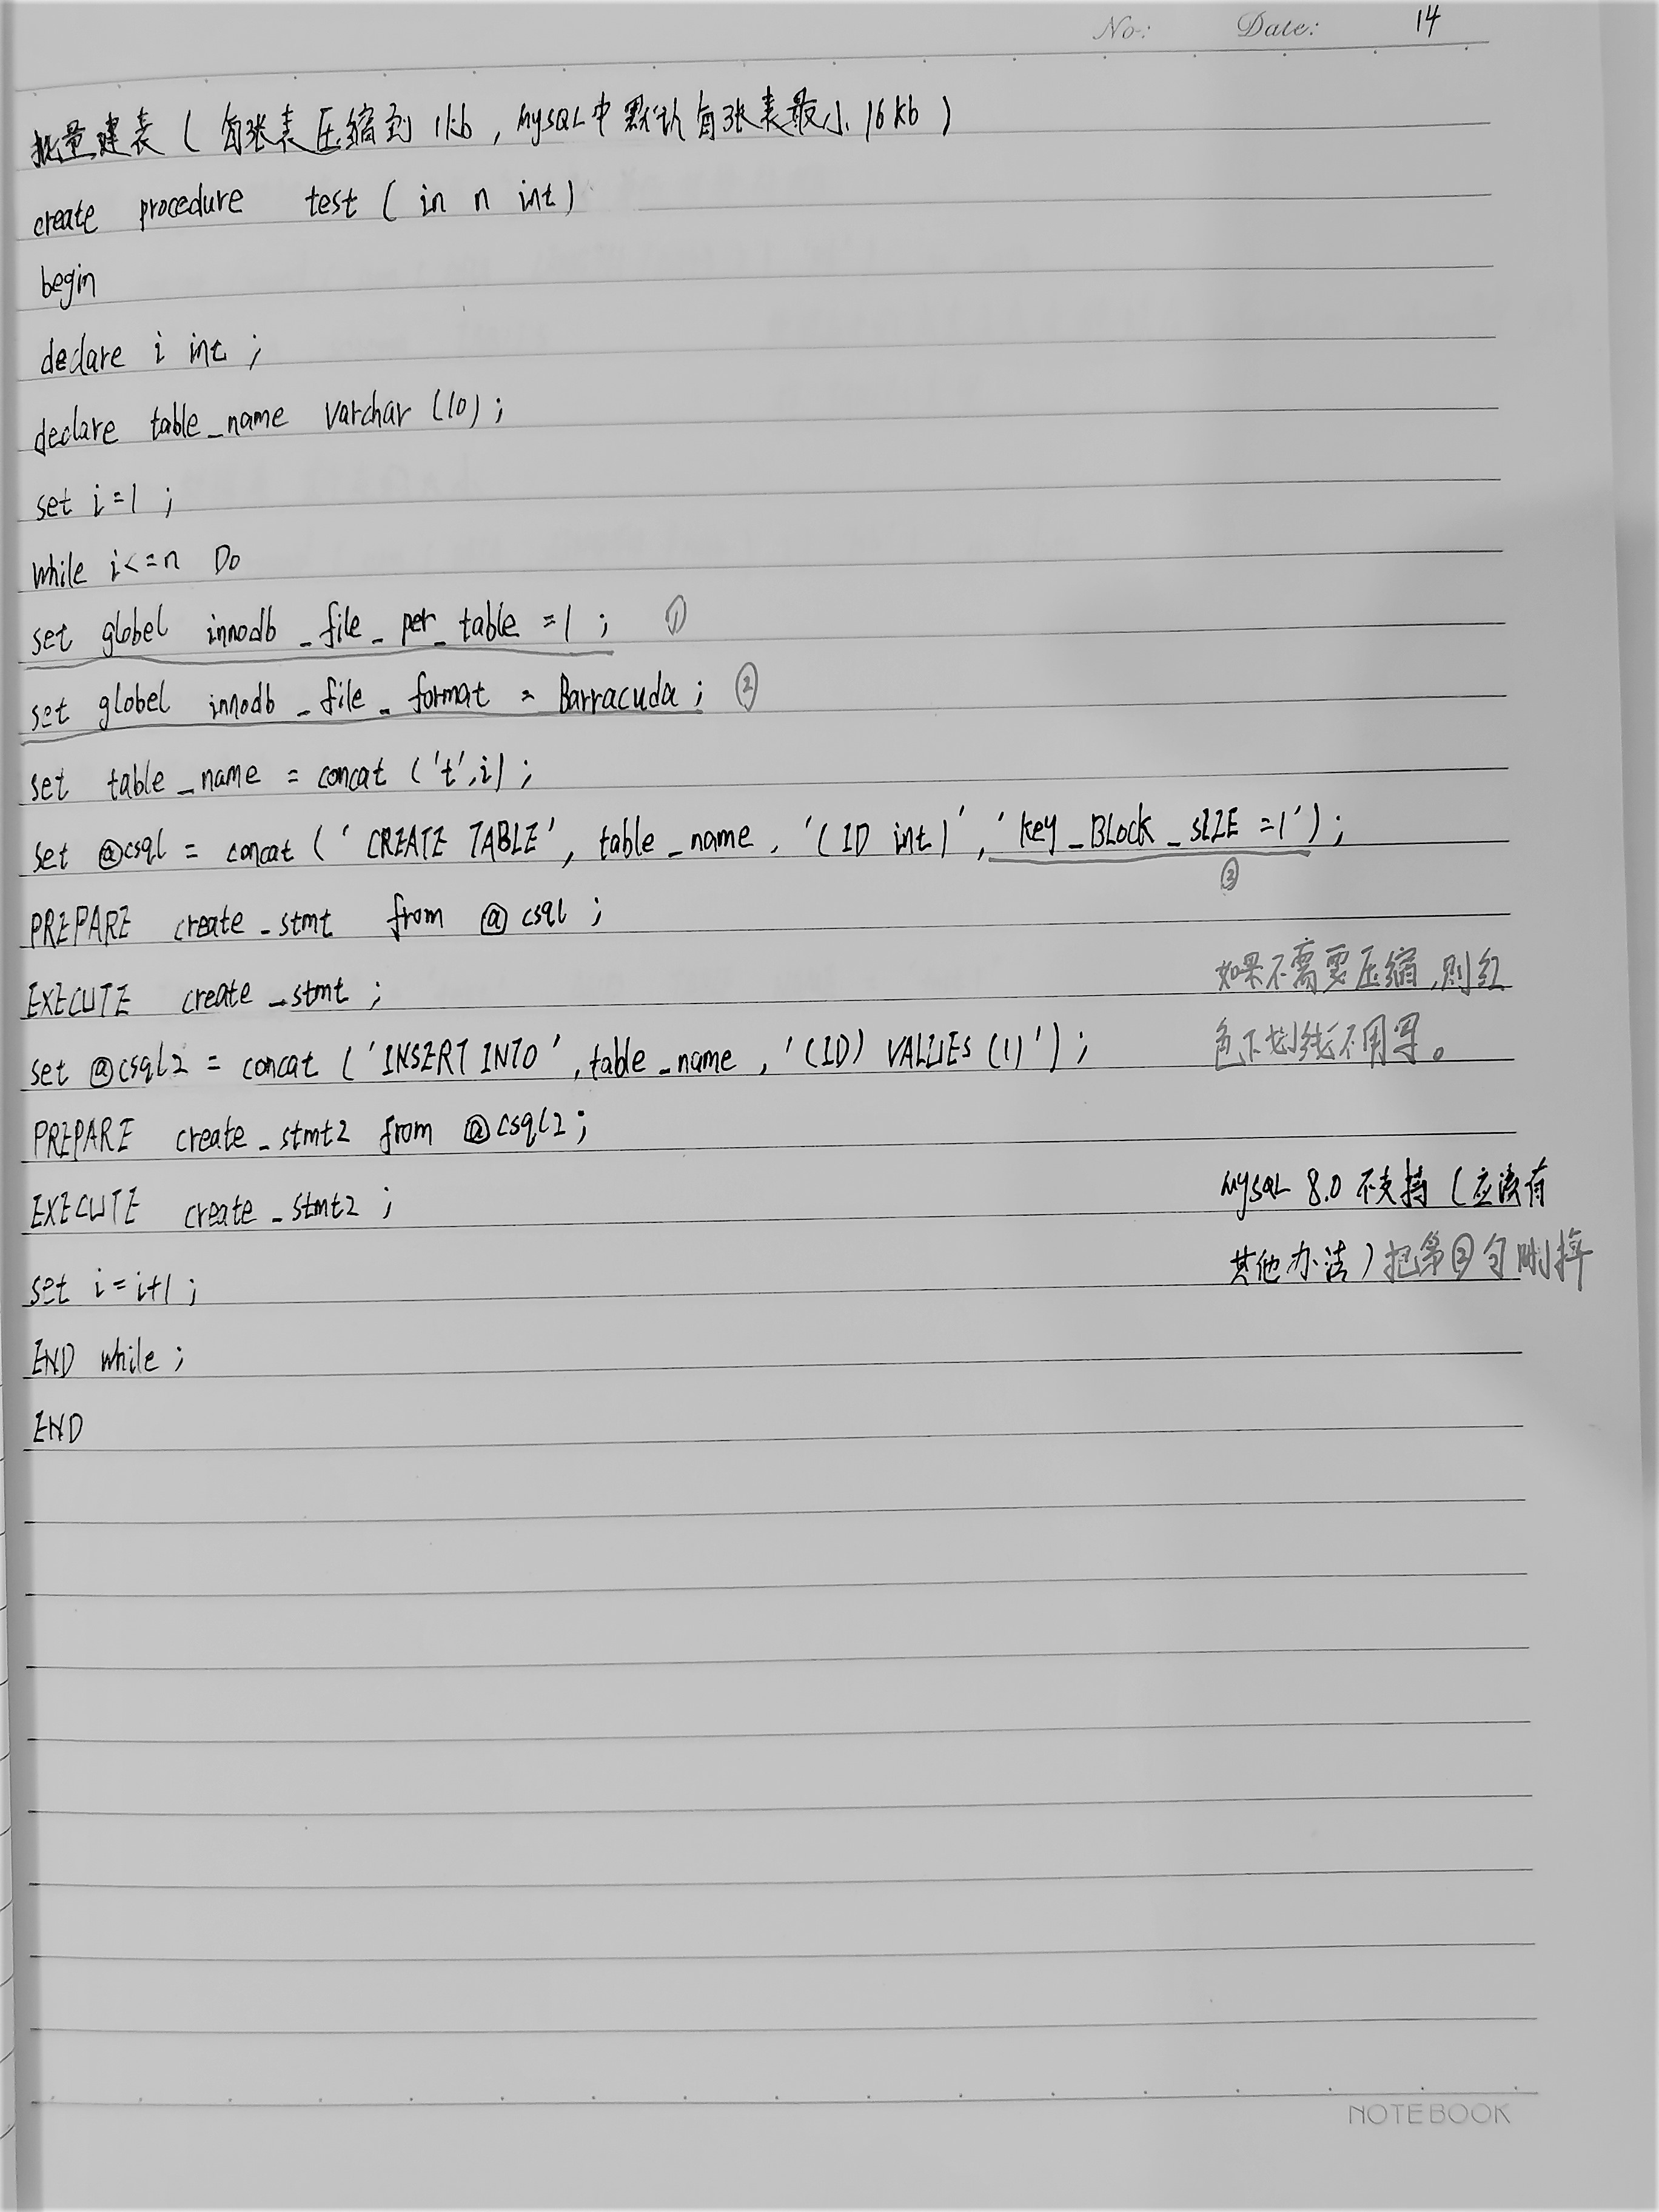 No: Date: 14
批量建表（每张表压缩到 1kb，MySQL中默认每张表最小 16kb）
create procedure test ( in n int )
begin
declare i int ;
declare table_name varchar (10) ;
set i=1 ;
while i<=n Do
set globel innodb_file_per_table =1 ; ①
set globel innodb_file_format = Barracuda ; ②
set table_name = concat ('t',i) ;
set @csql = concat (' CREATE TABLE', table_name , '(ID int)' , ' key_BLock_sIZE =1' ) ;
③
PREPARE create_stmt from @csql ;
如果不需要压缩,则红
EXECUTE create_stmt ;
色下划线不用写。
set @csql2 = concat ('INSERT INTO' , table_name , '(ID) VALUES (1)' ) ;
PREPARE create_stmt2 from @csql2;
MySQL 8.0 不支持（应该有
EXECUTE create_stmt2 ;
其他办法）把第②句删掉
set i=i+1 ;
END while ;
END
NOTEBOOK